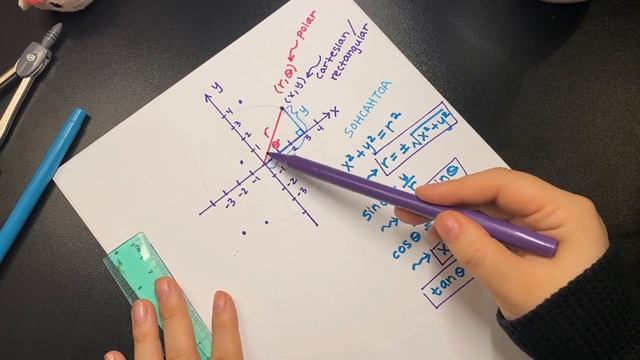 (r,θ) polar
(x,y) cartesian/
rectangular
y
4
3
2
1
-3 -2 -1
-1
-2
-3
2
3
4
x
r
θ
y
SOHCAHTOA
x²+y²=r²
r=±√x²+y²
sin
y/r
cosθ=
x
tanθ